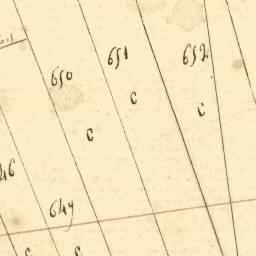 652
651
650
C
C
C
46
649
C
C